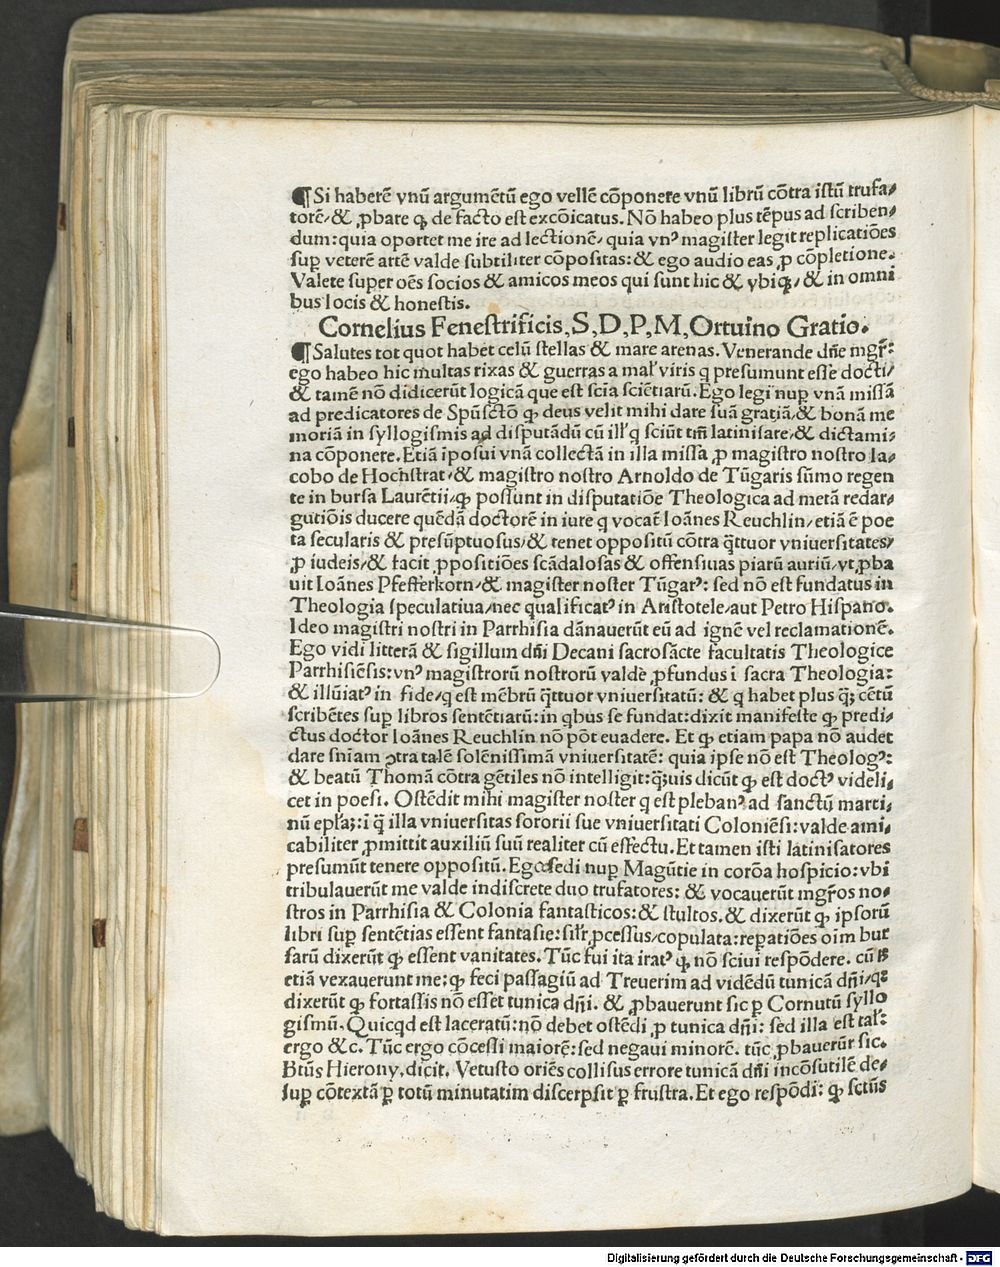 ¶Si haberē vnū argumētū ego vellē cōponere vnū librū cōtra istū trufa⸗
torē/& ꝓbare ꝙ de facto est excōicatus. Nō habeo plus tēpus ad scriben⸗
dum:quia oportet me ire ad lectionē/ quia vnꝰ magister legit replicatiōes
suꝑ veterē artē valde subtiliter cōpositas:& ego audio eas ꝓ cōpletione.
Valete super oēs socios & amicos meos qui sunt hic & vbiqꝫ/& in omni
bus locis & honestis.
Cornelius Fenestrificis,S,D,P,M,Ortuino Gratio.
¶Salutes tot quot habet celū stellas & mare arenas. Venerande dn̄e mgr̄:
ego habeo hic multas rixas & guerras a mal' viris q presumunt esse docti/
& tamē nō didicerūt logicā que est scīa sciētiarū. Ego legi nuꝑ vnā missā
ad predicatores de Spūsctō ꝙ deus velit mihi dare suā gratiā/& bonā me
moriā in syllogismis ad disputādū cū ill' q sciūt tm̄ latinisare/& dictami⸗
na cōponere. Etiā īposui vnā collectā in illa missa ꝓ magistro nostro Ia⸗
cobo de Hochstrat/& magistro nostro Arnoldo de Tūgaris sūmo regen
te in bursa Laurētii/ꝙ possunt in disputatiōe Theologica ad metā redar⸗
gutiōis ducere quēdā doctorē in iure q vocat̄ Ioānes Reuchlin/etiā ē poe
ta secularis & presūptuosus/& tenet oppositū cōtra q̄ttuor vniuersitates/
ꝓ iudeis/& facit ꝓpositiōes scādalosas & offensiuas piarū auriū/vt ꝓba
uit Ioānes Pfefferkorn/& magister noster Tūgarꝰ: sed nō est fundatus in
Theologia speculatiua/nec qualificatꝰ in Aristotele/aut Petro Hispano.
Ideo magistri nostri in Parrhisia dānauerūt eū ad ignē vel reclamationē.
Ego vidi litterā & sigillum dn̄i Decani sacrosācte facultatis Theologice
Parrhisiēsis:vnꝰ magistrorū nostrorū valde ꝓfundus ī sacra Theologia:
& illūiatꝰ in fide/q est mēbrū q̄ttuor vniuersitatū: & q habet plus q̄ꝫ cētū
scribētes suꝑ libros sentētiarū:in qbus se fundat:dixit manifeste ꝙ predi⸗
ctus doctor Ioānes Reuchlin nō pōt euadere. Et ꝙ etiam papa nō audet
dare sn̄iam ꝯtra talē solēnissimā vniuersitatē: quia ipse nō est Theologꝰ:
& beatū Thomā cōtra gētiles nō intelligit:q̄ꝫuis dicūt ꝙ est doctꝰ videli⸗
cet in poesi. Ostēdit mihi magister noster q est plebanꝰ ad sanctū marti⸗
nū epl'aꝫ:ī q̄ illa vniuersitas sororii sue vniuersitati Coloniēsi:valde ami⸗
cabiliter ꝓmittit auxiliū suū realiter cū effectu. Et tamen isti latinisatores
presumūt tenere oppositū. Ego sedi nuꝑ Magūtie in corōa hospicio:vbi
tribulauerūt me valde indiscrete duo trufatores: & vocauerūt mgr̄os no⸗
stros in Parrhisia & Colonia fantasticos:& stultos.& dixerūt ꝙ ipsorū
libri suꝑ sentētias essent fantasię:sil'r ꝓcessus/copulata:repatiōes oīm bur
sarū dixerūt ꝙ essent vanitates. Tūc fui ita iratꝰ ꝙ nō sciui respōdere. cū ꝭ
etiā vexauerunt me:ꝙ feci passagiū ad Treuerim ad vidēdū tunicā dn̄i/qꝛ
dixerūt ꝙ fortassis nō esset tunica dn̄i. & ꝓbauerunt sic ꝑ Cornutū syllo
gismū. Quicqd est laceratū:nō debet ostēdi ꝓ tunica dn̄i: sed illa est tal':
ergo &c. Tūc ergo cōcessi maiorē:sed negaui minorē. tūc ꝓbauerūr sic.
Btūs Hierony.dicit. Vetusto oriēs collisus errore tunicā dn̄i incōsutilē de⸗
suꝑ cōtextā ꝑ totū minutatim discerpsit ꝑ frustra. Et ego respōdi: ꝙ sctūs
Digitalisierung gefördert durch die Deutsche Forschungsgemeinschaft - DFG